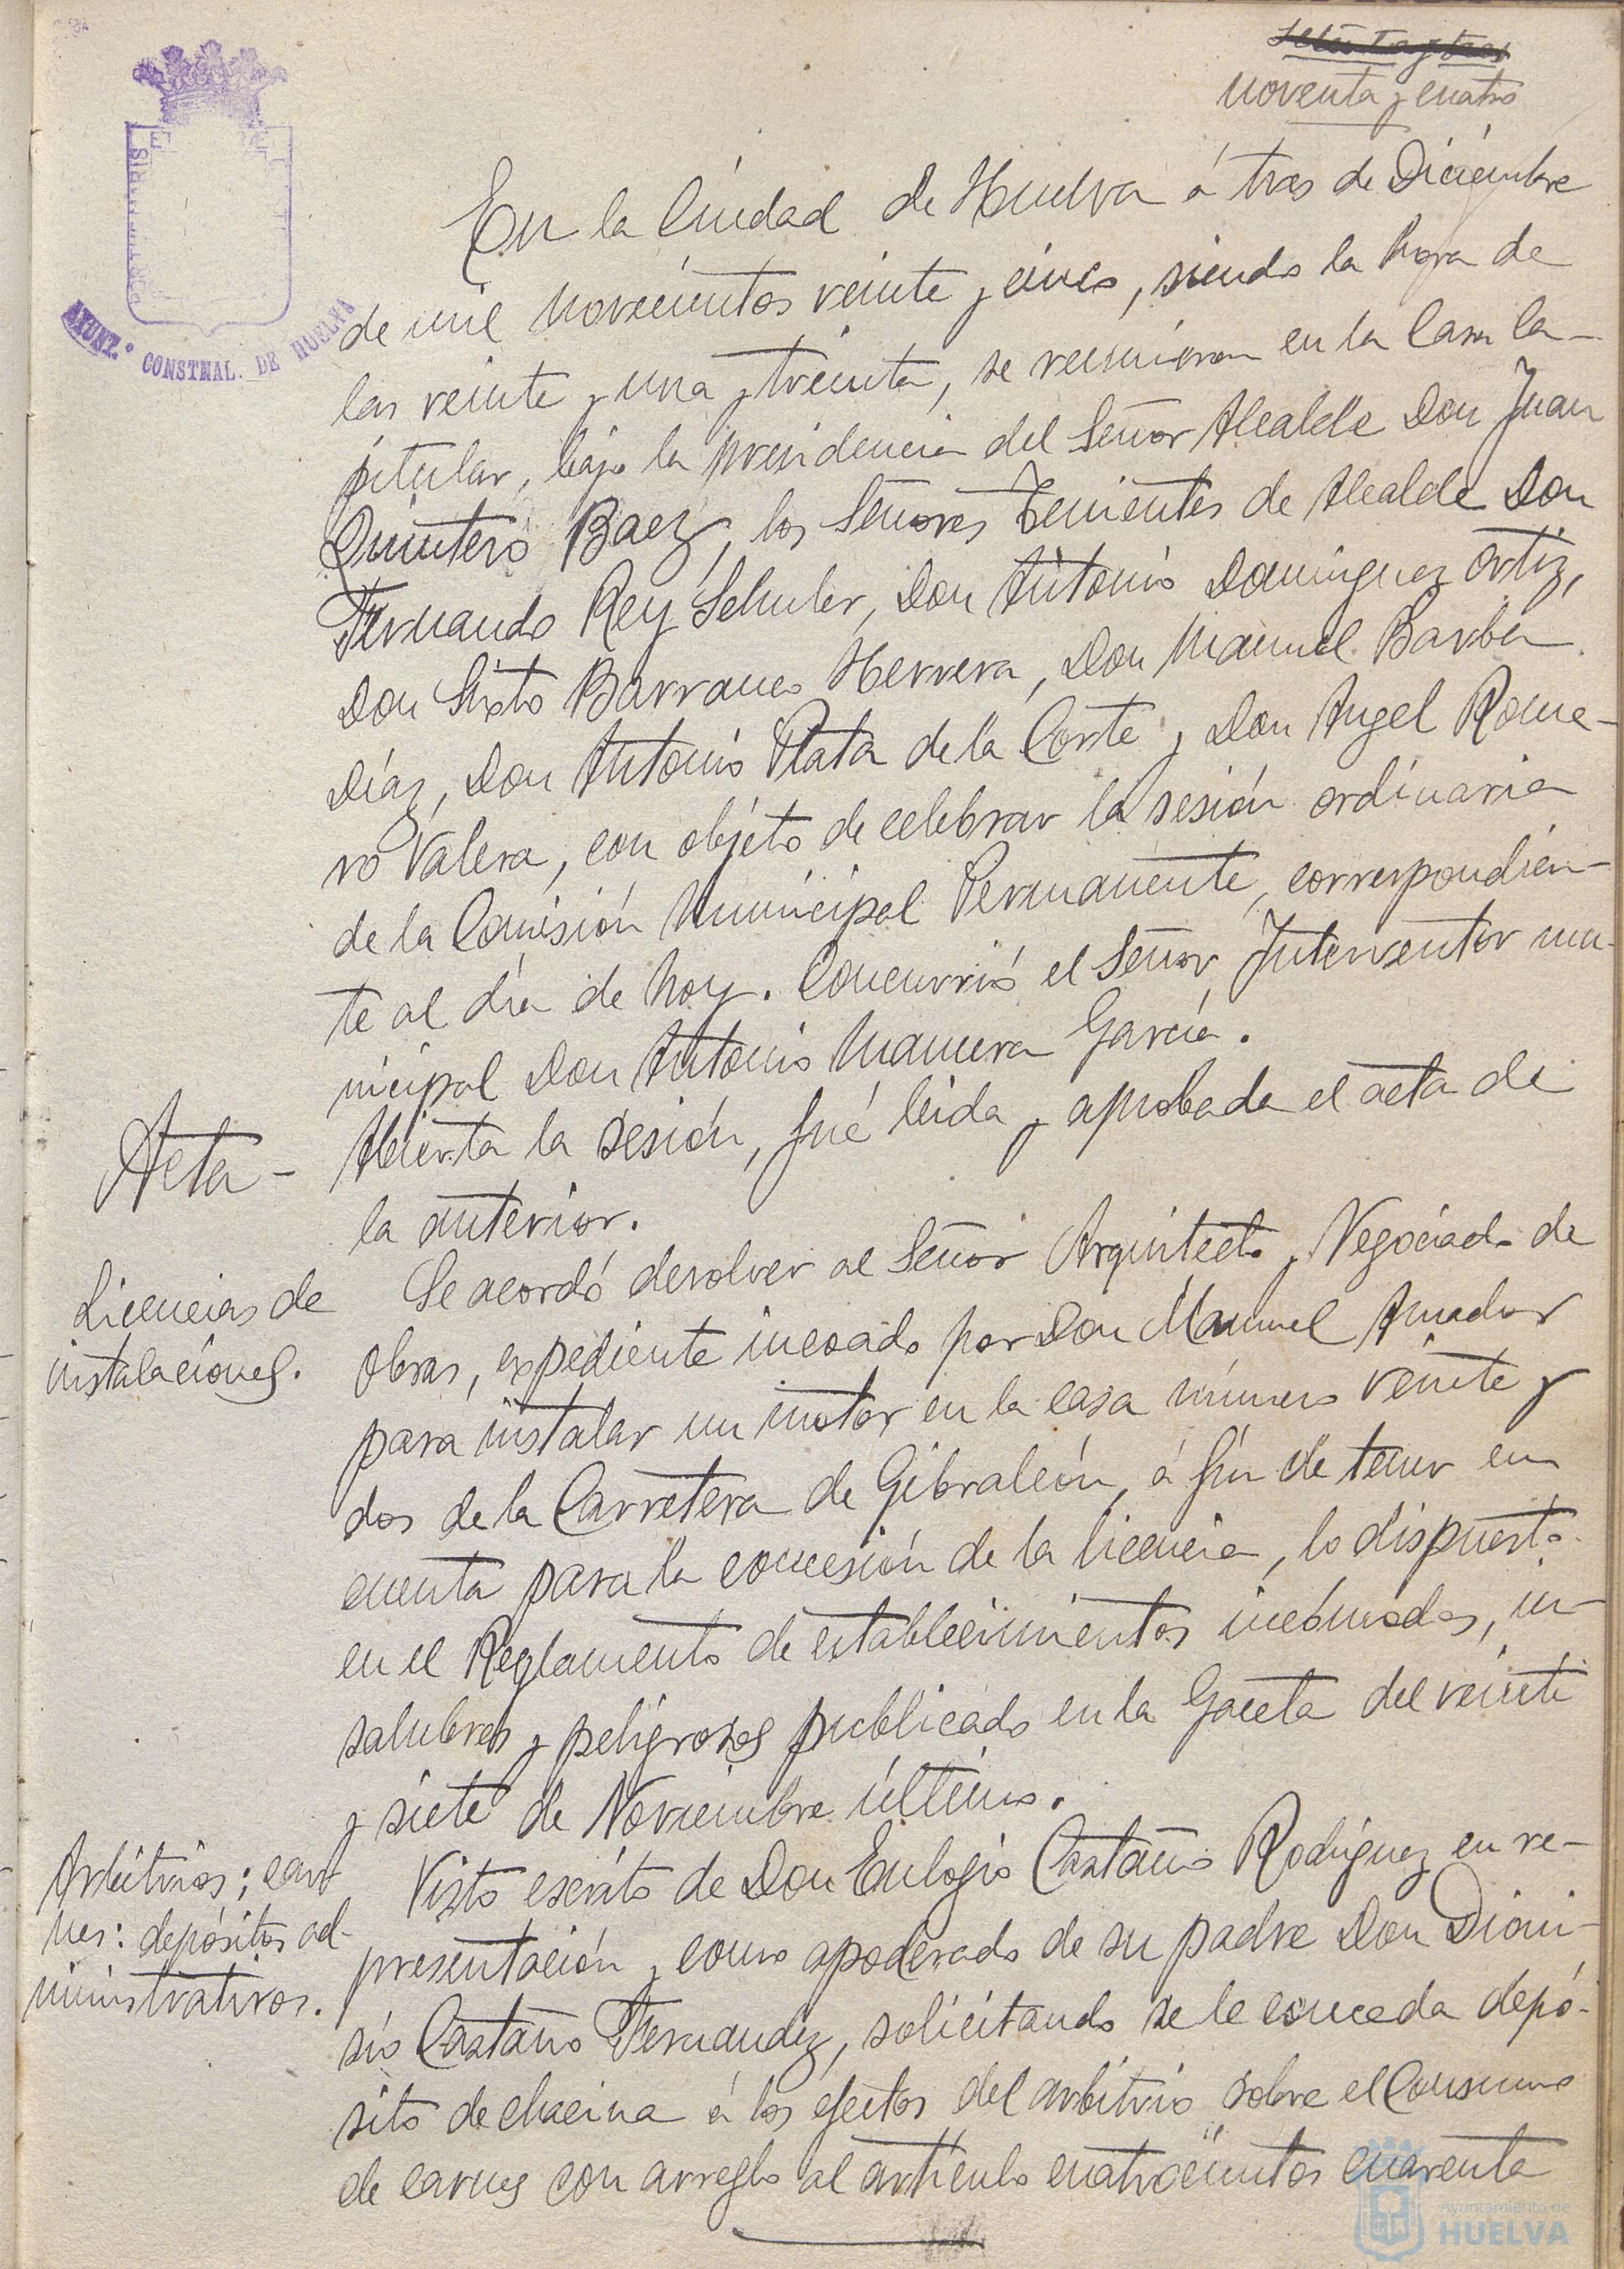 noventa y cuatro
AYUNT.º CONSTNAL. DE HUELVA
En la Ciudad de Huelva á tres de Diciembre
de mil novecientos veinte y cinco, siendo la hora de
las veinte y una y treinta, se reunieron en la Casa Ca-
pitular, bajo la presidencia del Señor Alcalde Don Juan
Quintero Baez, los Señores Tenientes de Alcalde Don
Fernando Rey Schuler, Don Antonio Dominguez Ortiz,
Don Sixto Barranco Herrera, Don Manuel Barba
Díaz, Don Antonio Plata de la Corte y Don Angel Rome-
ro Valera, con objéto de celebrar la sesión ordinaria
de la Comisión Municipal Permanente, correspondien-
te al día de hoy. Concurrió el Señor Interventor mu-
nicipal Don Antonio Mamera García.
Acta-
Abierta la sesión, fué leida y aprobada el acta de
la anterior.
Licencias de
instalaciones.
Se acordó devolver al Señor Arquitecto y Negociado de
Obras, expediente incoado por Don Manuel Amador
para instalar un motor en la casa número veinte y
dos de la Carretera de Gibraleón, á fin de tener en
cuenta para la concesión de la licencia, lo dispuesto
en el Reglamento de establecimientos incómodos, in-
salubres y peligrosos publicado en la Gaceta del veinte
y siete de Noviembre último.
Arbitrios; car-
nes: depósitos ad-
ministrativos.
Visto escrito de Don Eulogio Castaño Rodriguez en re-
presentación y como apoderado de su padre Don Dioni-
sio Castaño Fernandez, solicitando se le conceda depó-
sito de chacina á los efectos del arbitrio sobre el Consumo
de carnes con arreglo al artículo cuatrocientos cuarenta
Ayuntamiento de
HUELVA